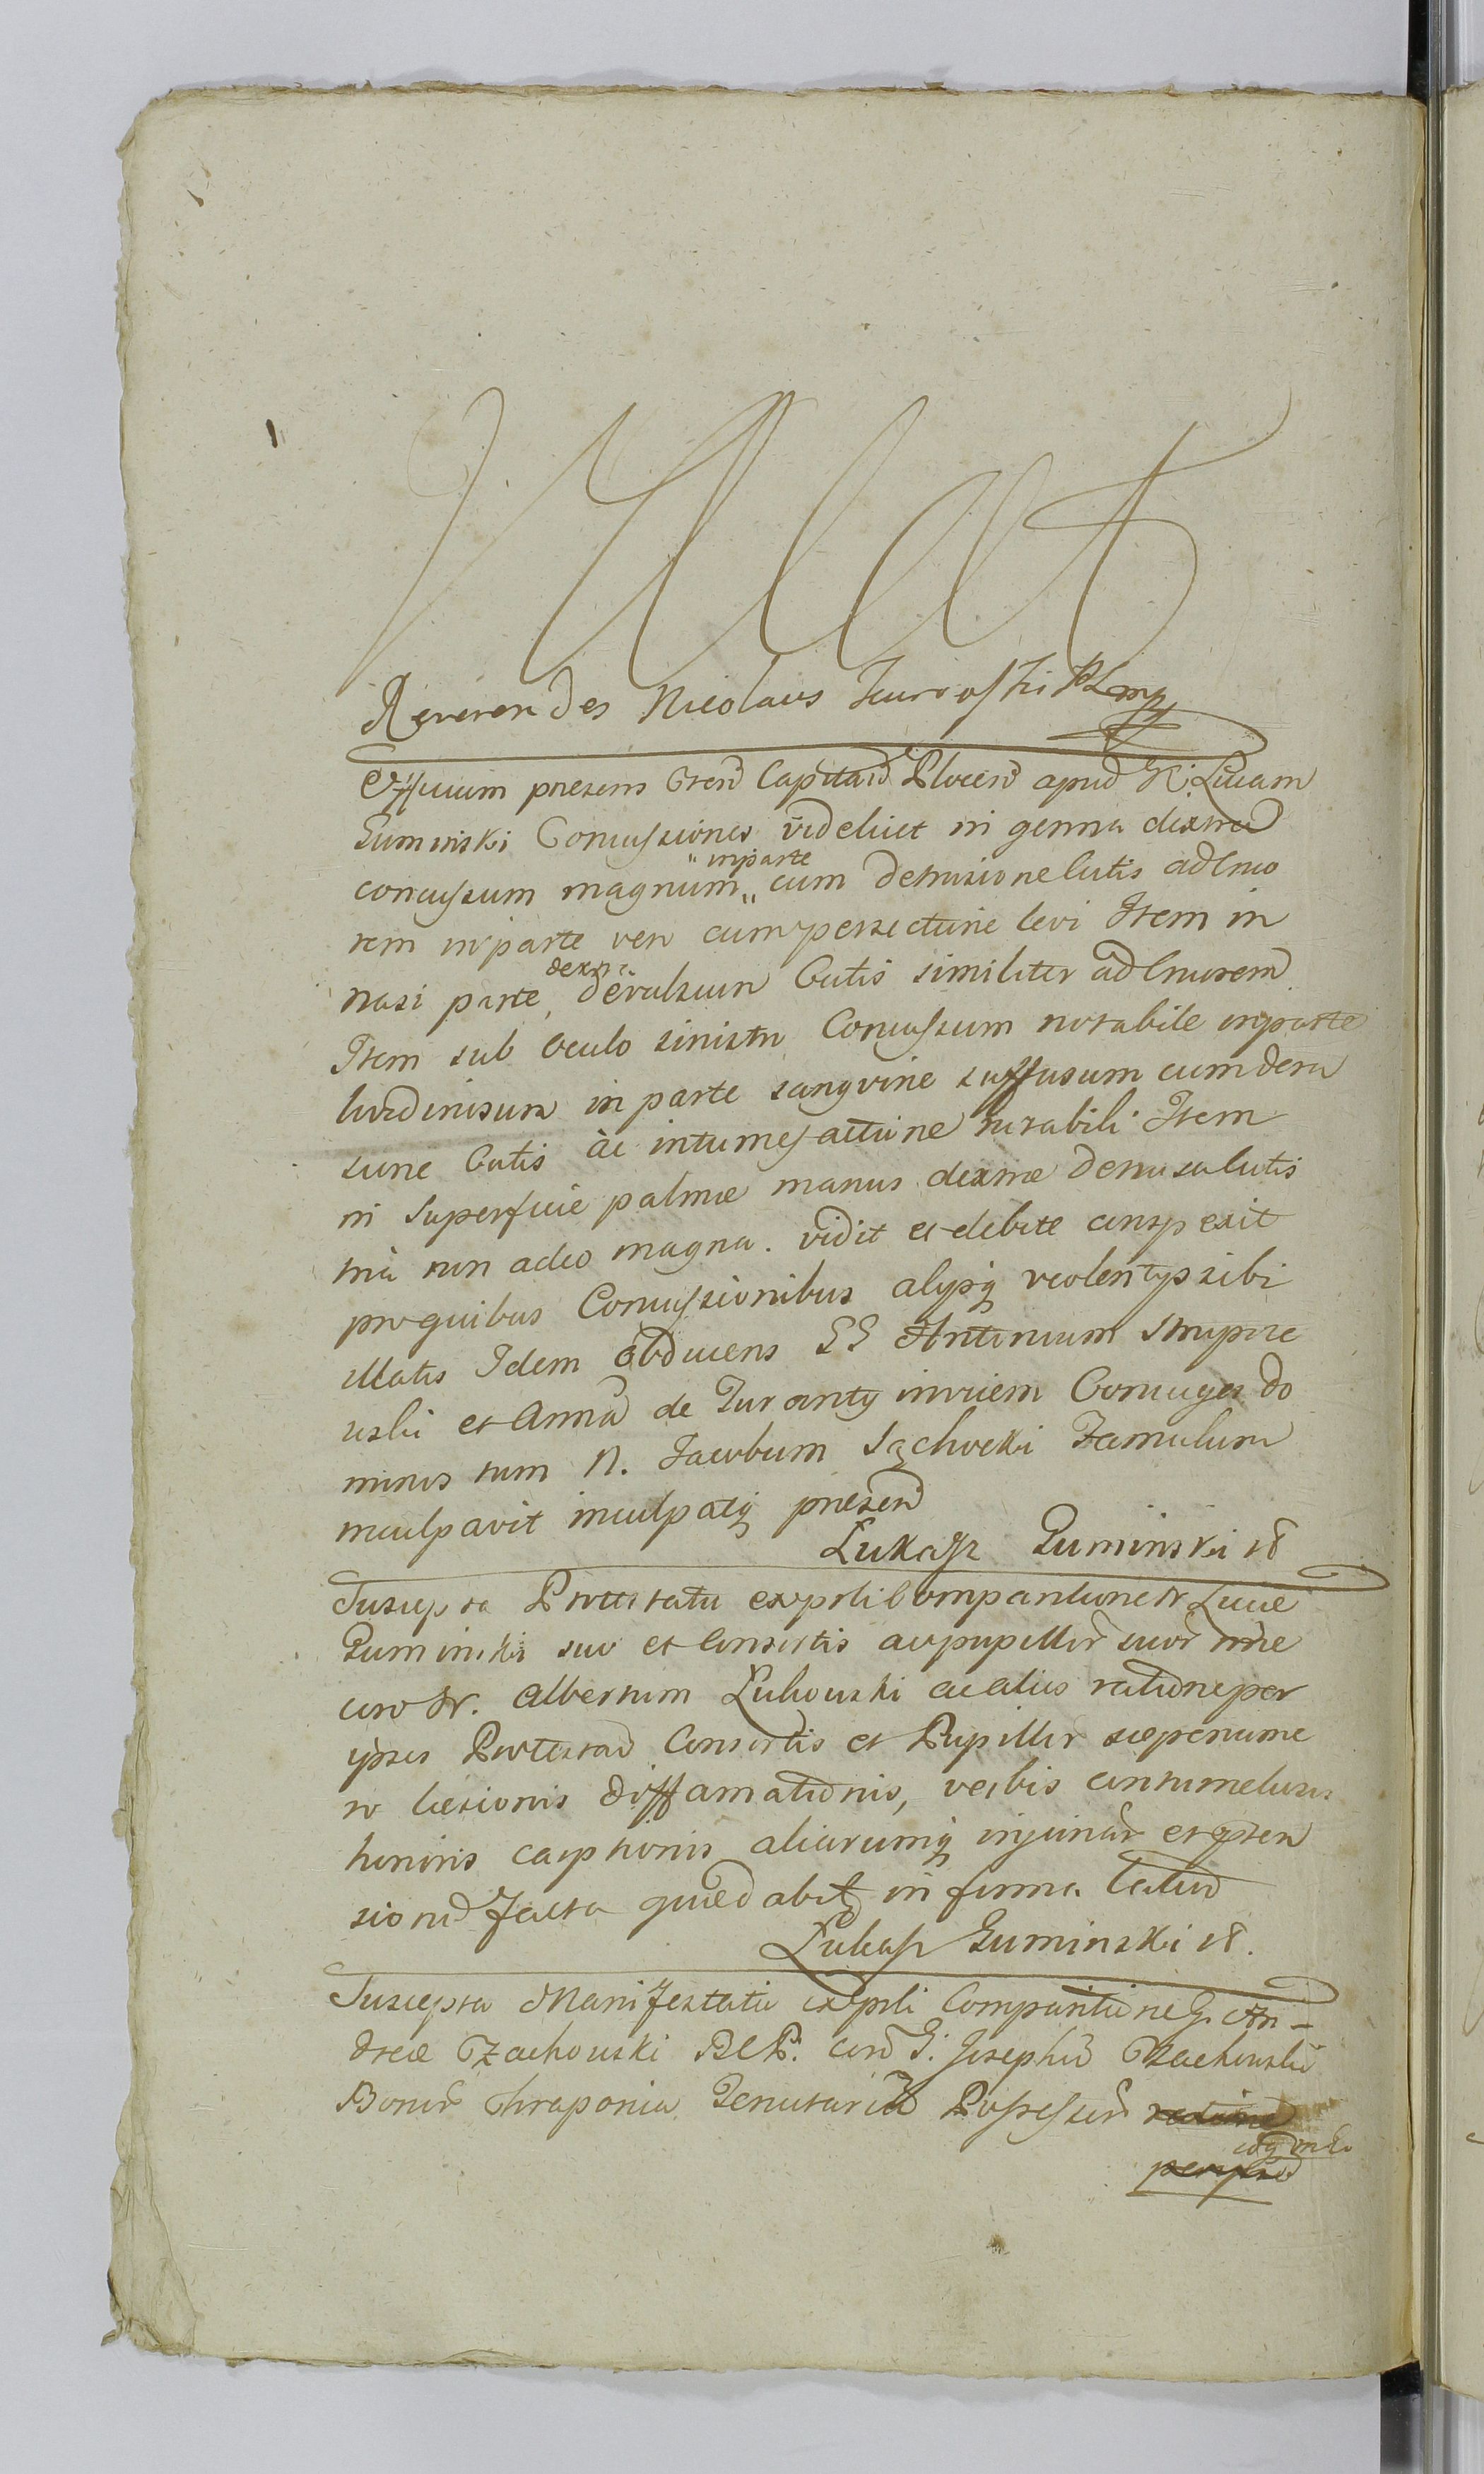 Reverendes Nicolaus
Officium presens Gren̄ Capitan̄ Plocen̄ apud N. Lucam
Guminski Concussiones videlicet in genna dextra
concussum magnum "in parte" cum detrusione Cutis ad Cruo
rem in parte vero cum persectione levi Item in
nasi parte dextra devulsum Cutis similiter ad Cruorem
Item sub oculo sinistro Concussum notabile in parte
lividinosum in parte sangvine suffusum cum detru
sione Cutis ac intumefactione notabili Item
in Superficie palmæ manus dextræ detrusa Cutis
non adeo magna. vidit et debite conspexit
pro quibus Concussionibus alijsq violentijs sibi
illatis Idem obducens GG Antonium
et Annam de invicem Conuges Do
minos tum N. Jacobum Famulum
inculpavit inculpatq presen̄
Lukasz Guminski
Suscepta Protestatio ex psti Comparitione N. Lucæ
Guminski suo et Consortis ac pupillor suor noie
con N. Albertum Lukowski ac alios ratione per
ipsos Protestan̄ Consortis et Pupillor sæpenume
ro læsionis diffamationis, verbis contumeliosis
honoris captionis aliarumq injuriar et
sion̄ facta quæ dabit in forma latiori
Lukasz Guminski
Suscepta Manifestatio ex psti Comparitione G. An-
dreæ Czachowski B C P. con G. Josephum Czachowski
Bonor Chraponia Tenutarium Possessorem ratione